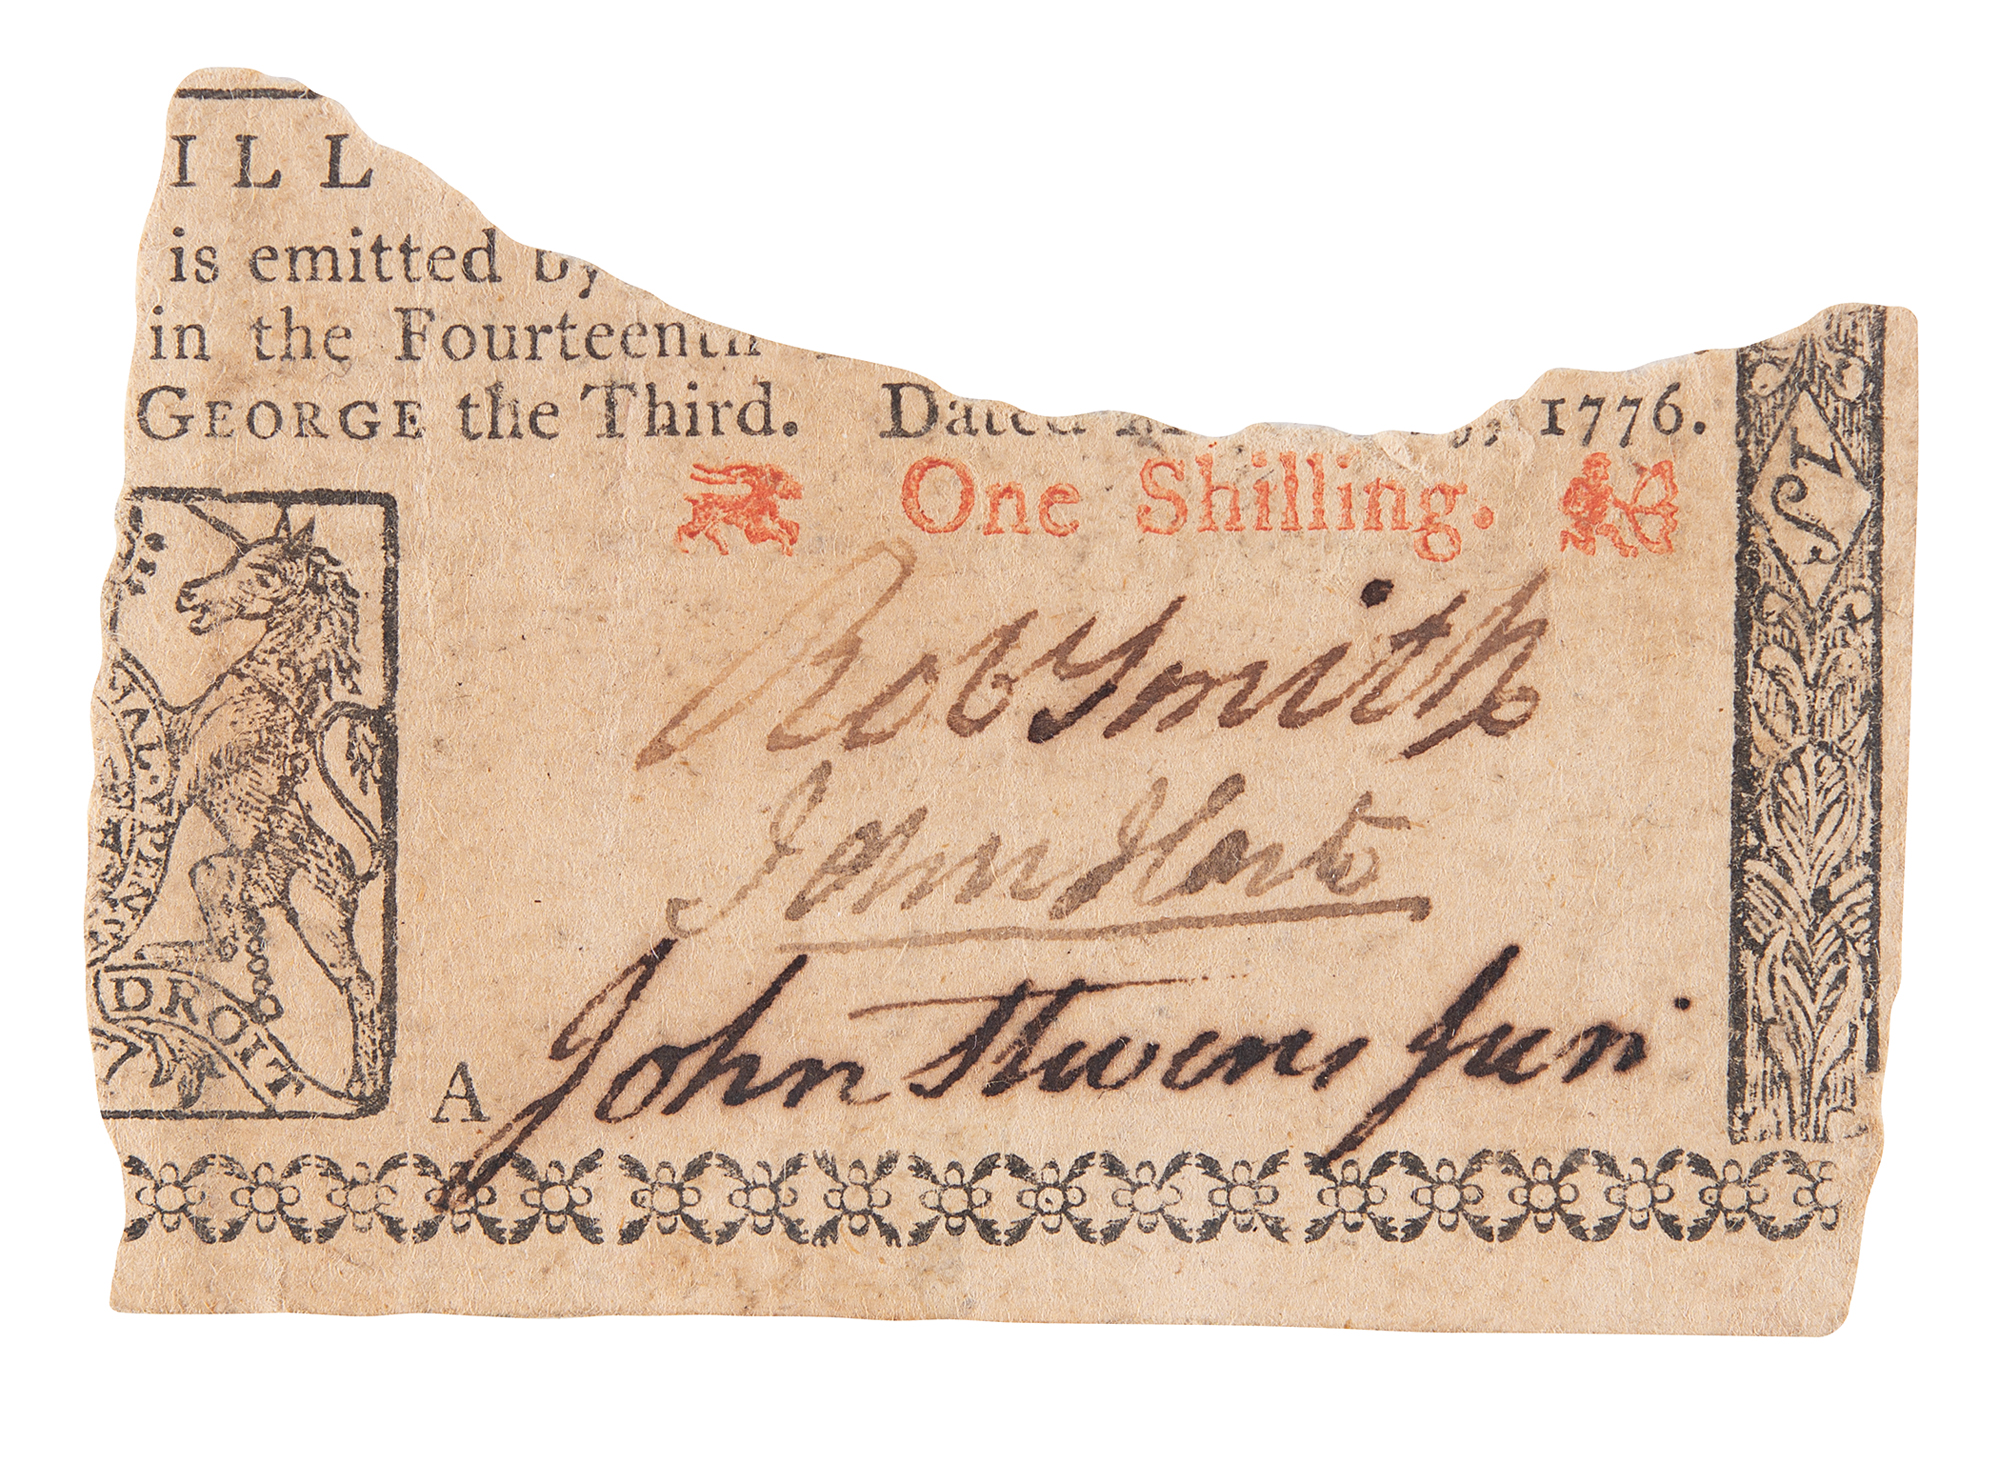 ILL
is emitted by
in the Fourteenth
GEORGE the Third. Dated 1776.
One Shilling.
1 S
DROIT
Rob Smith
John Hart
A John Stevens Jun